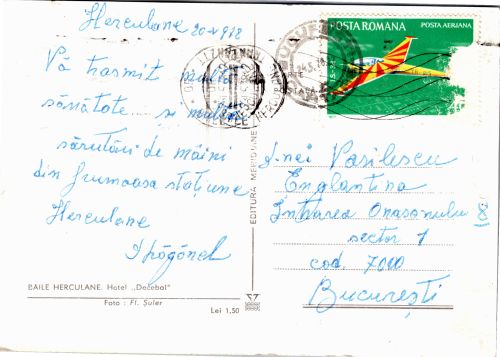 Herculane 20-V 978
Vă trasmit multă
sănătate și multe
sărutări de mâini
din frumoasa stațiune
Herculane
BAILE HERCULANE. Hotel „Decebal"
Foto : Fl. Șuler
Lei 1,50
EDITURA MERIDIANE
POSTA ROMANA
POSTA AERIANA
D-nei Vasilescu
Englantina
Intrarea Onasanului
sector 1
cod. 7000
București